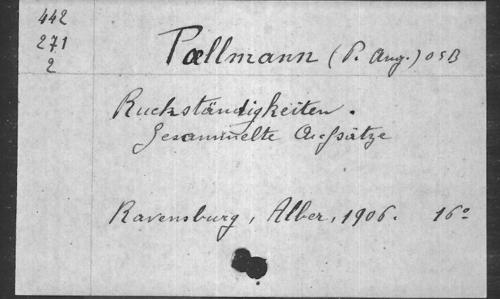 442
271
2
Pœllmann (P. Aug.) OSB
Ruckständigkeiten.
Gesammelte Aufsätze
Ravensburg, Alber, 1906. 16º